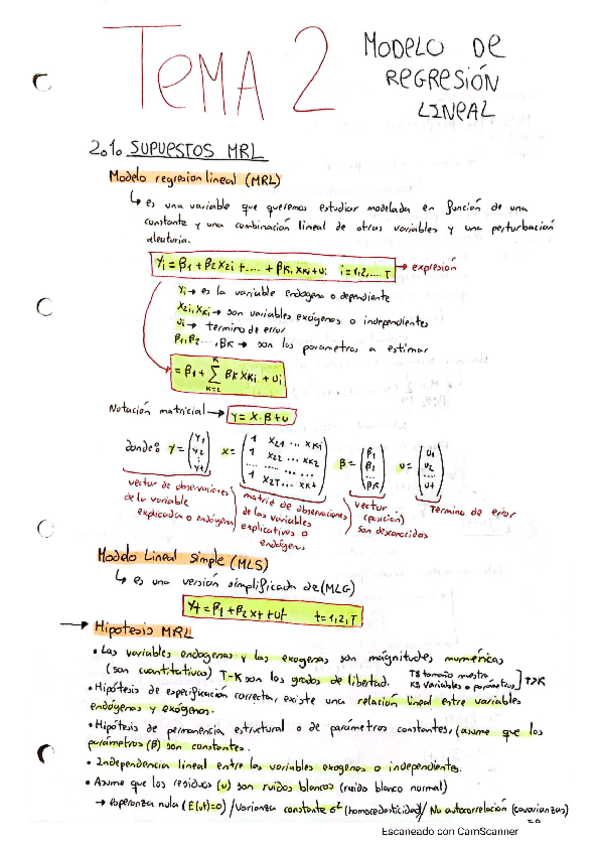 TEMA 2 MODELO DE
REGRESIÓN
LINEAL
2.1. SUPUESTOS MRL
Modelo regresion lineal (MRL)
↳ es una variable que queremos estudiar modelada en función de una
constante y una combinación lineal de otras variables y una perturbación
aleatoria.
Yi = β1 + β2 X2i + .... + βK, XKi + Ui i = 1,2,... T → expresión
Yi → es la variable endógena o dependiente
X2i, XKi → son variables exógenas o independientes
Ui → termino de error
β1, β2 ..., βK → son los parametros a estimar
= β1 + Σ βK XKi + Ui
Notación matricial → Y = X · β + U
donde: Y = (Y1 Y2 ⋮ Yt) X = (1 X21 ... XK1 1 X22 ... XK2 .... 1 X2T ... XKt) β = (β1 β2 ... βK) U = (U1 U2 ... Ut)
vector de observaciones de la variable explicada o endógena
matriz de observaciones de las variables explicativos o endógenas
vector (posición) son desconocidos
Termino de error
Modelo Lineal simple (MLS)
↳ es una versión simplificada de (MLG)
Yt = β1 + β2 Xt + Ut t = 1,2,T
→ Hipotesis MRL
• Las variables endogenas y las exogenas son magnitudes numéricas
(son cuantitativas) T-K son los grados de libertad. T≡ tamaño muestra K≡ variables o parámetros ] T>K
• Hipótesis de especificación correcta, existe una relación lineal entre variables
endógenas y exógenas.
• Hipótesis de permanencia estructural o de parámetros constantes, (asume que los
parámetros (β) son constantes.
• Independencia lineal entre las variables exogenas o independientes.
• Asume que los residuos (u) son ruidos blancos (ruido blanco normal)
→ esperanza nula (E(Ut)=0) / Varianza constante σ² (homocedasticidad) / No autocorrelación (covarianzas)
=0
Escaneado con CamScanner